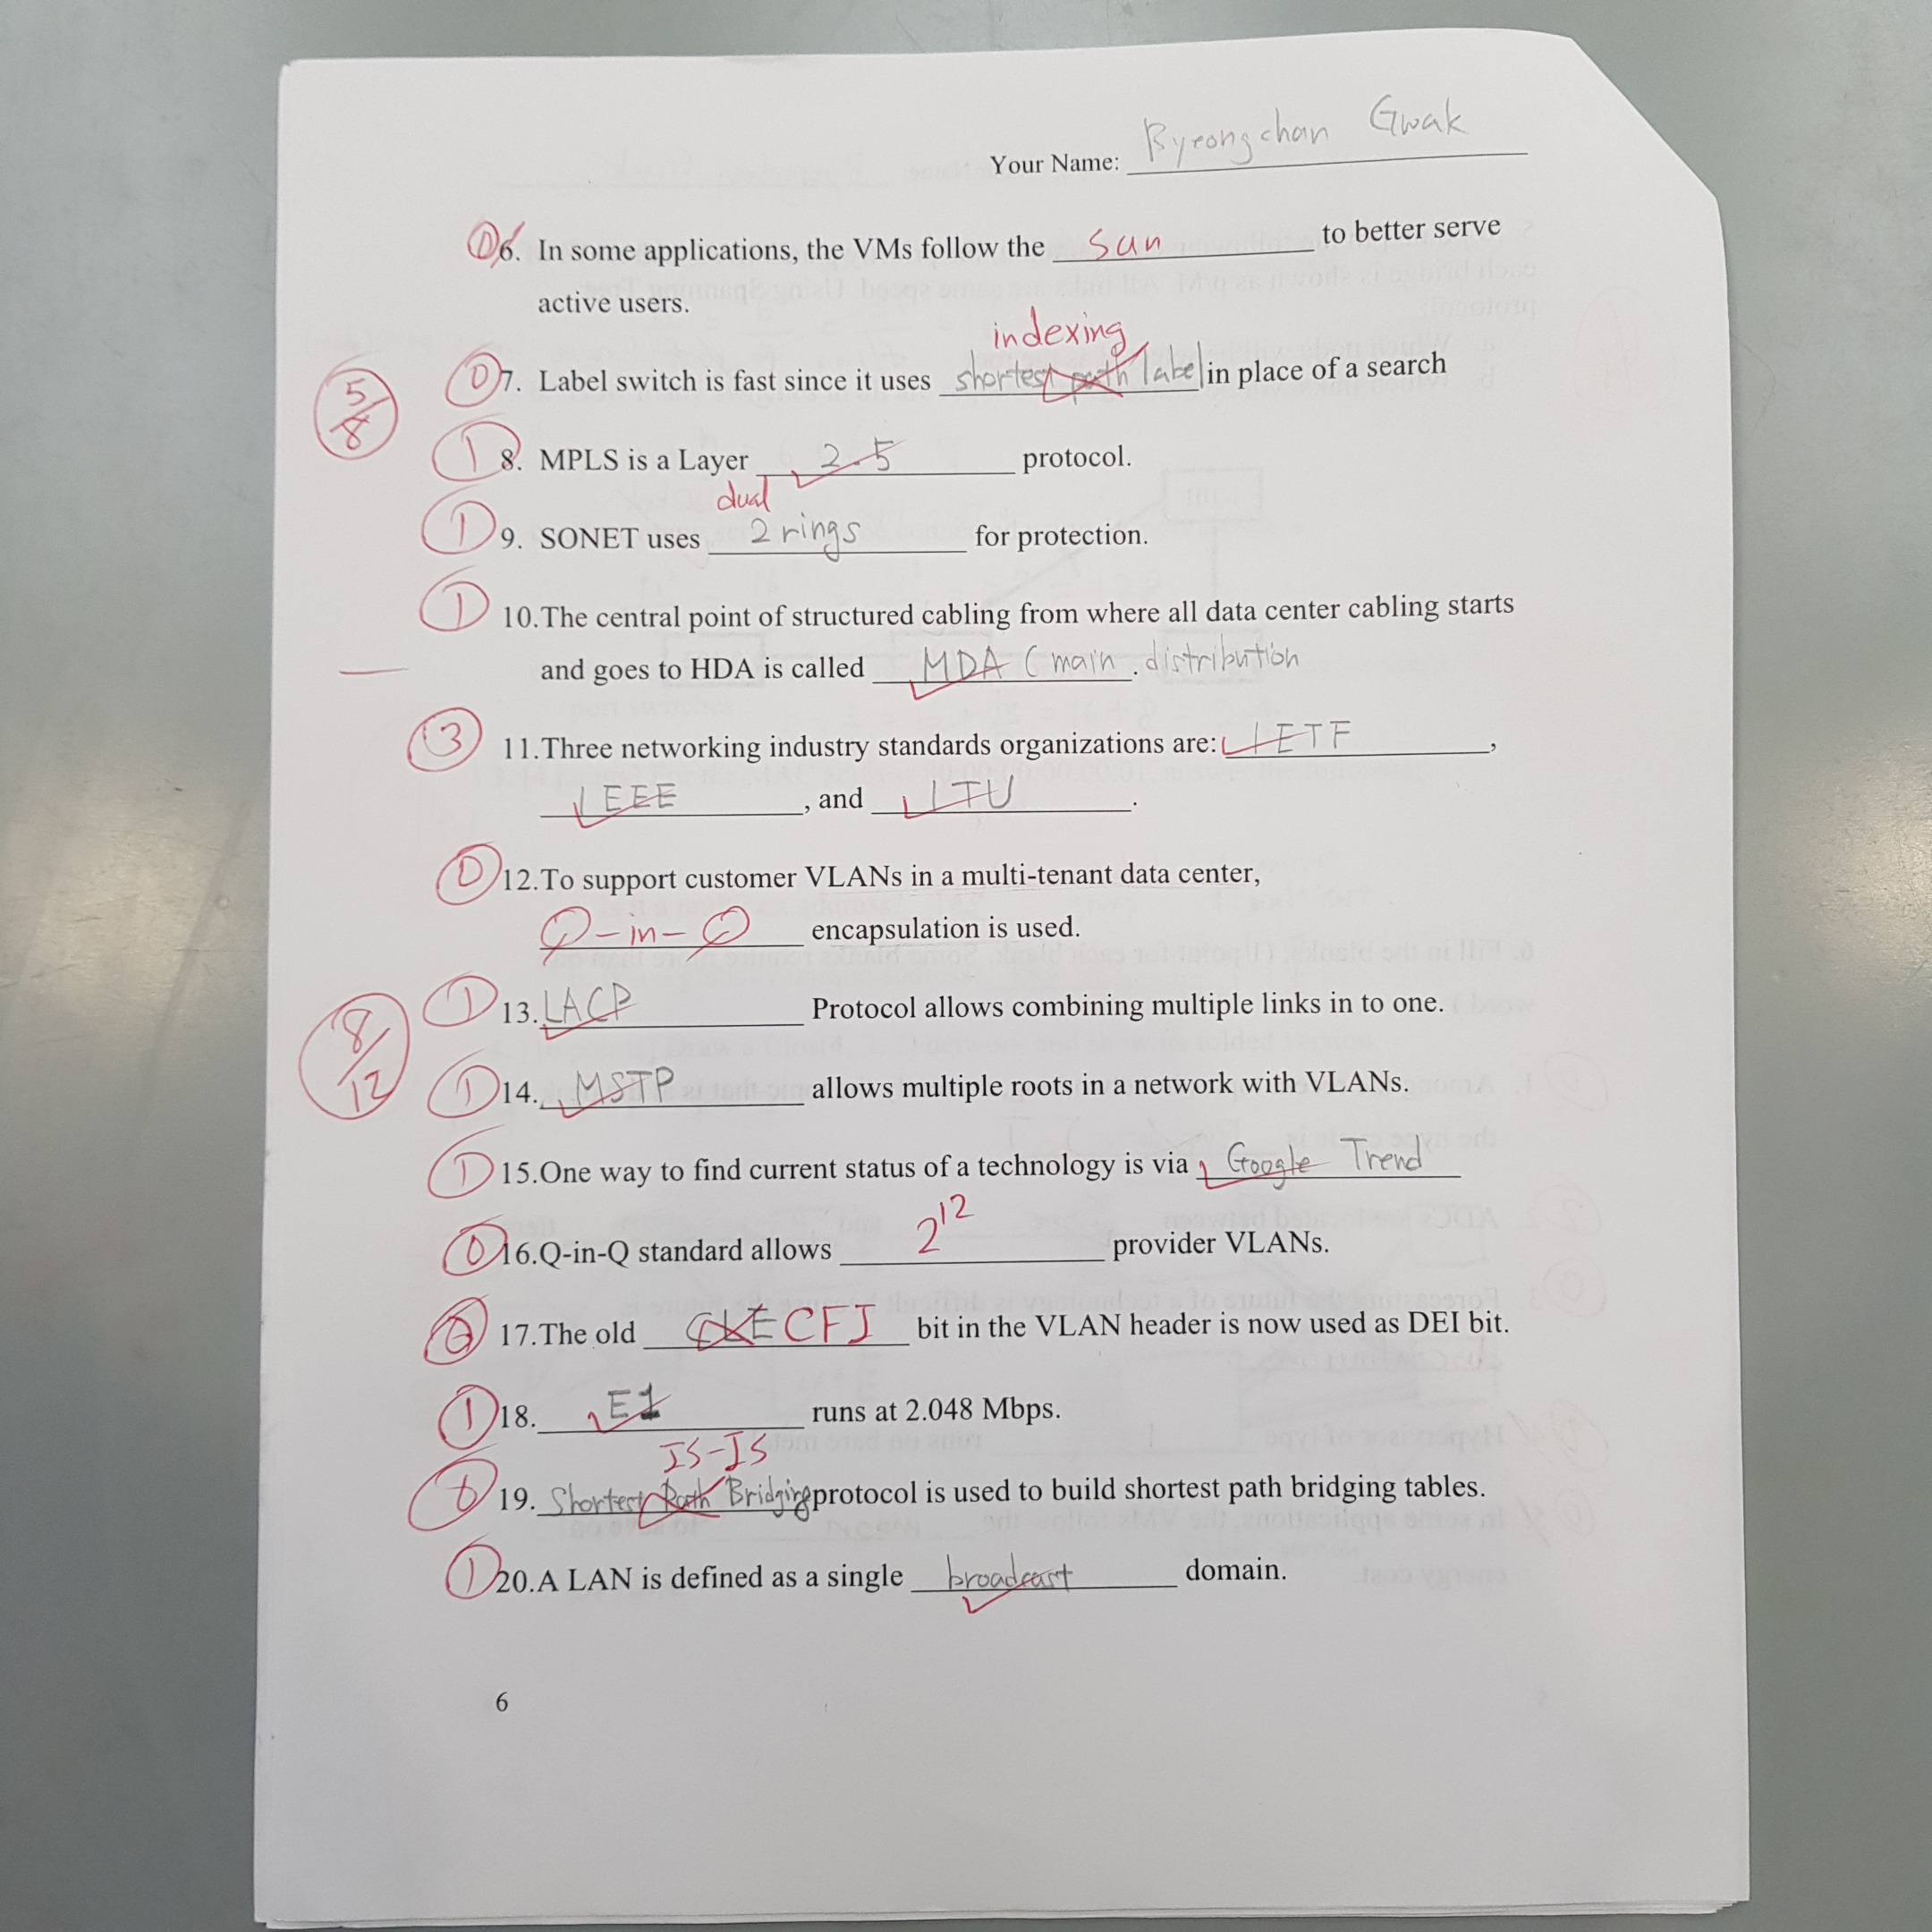 Your Name: Byeongchan Gwak
0 6. In some applications, the VMs follow the sun to better serve
active users.
indexing
5/8
0 7. Label switch is fast since it uses shortest path label in place of a search
1 8. MPLS is a Layer 2.5 protocol.
dual
1 9. SONET uses 2 rings for protection.
1 10.The central point of structured cabling from where all data center cabling starts
and goes to HDA is called MDA (main distribution.
3 11.Three networking industry standards organizations are: IETF,
IEEE, and ITU.
0 12.To support customer VLANs in a multi-tenant data center,
Q-in-Q encapsulation is used.
8/12
1 13.LACP Protocol allows combining multiple links in to one.
1 14. MSTP allows multiple roots in a network with VLANs.
1 15.One way to find current status of a technology is via Google Trend
0 16.Q-in-Q standard allows 2^12 provider VLANs.
17.The old CFI bit in the VLAN header is now used as DEI bit.
1 18. E1 runs at 2.048 Mbps.
IS-IS
0 19. Shortest Path Bridging protocol is used to build shortest path bridging tables.
1 20.A LAN is defined as a single broadcast domain.
6